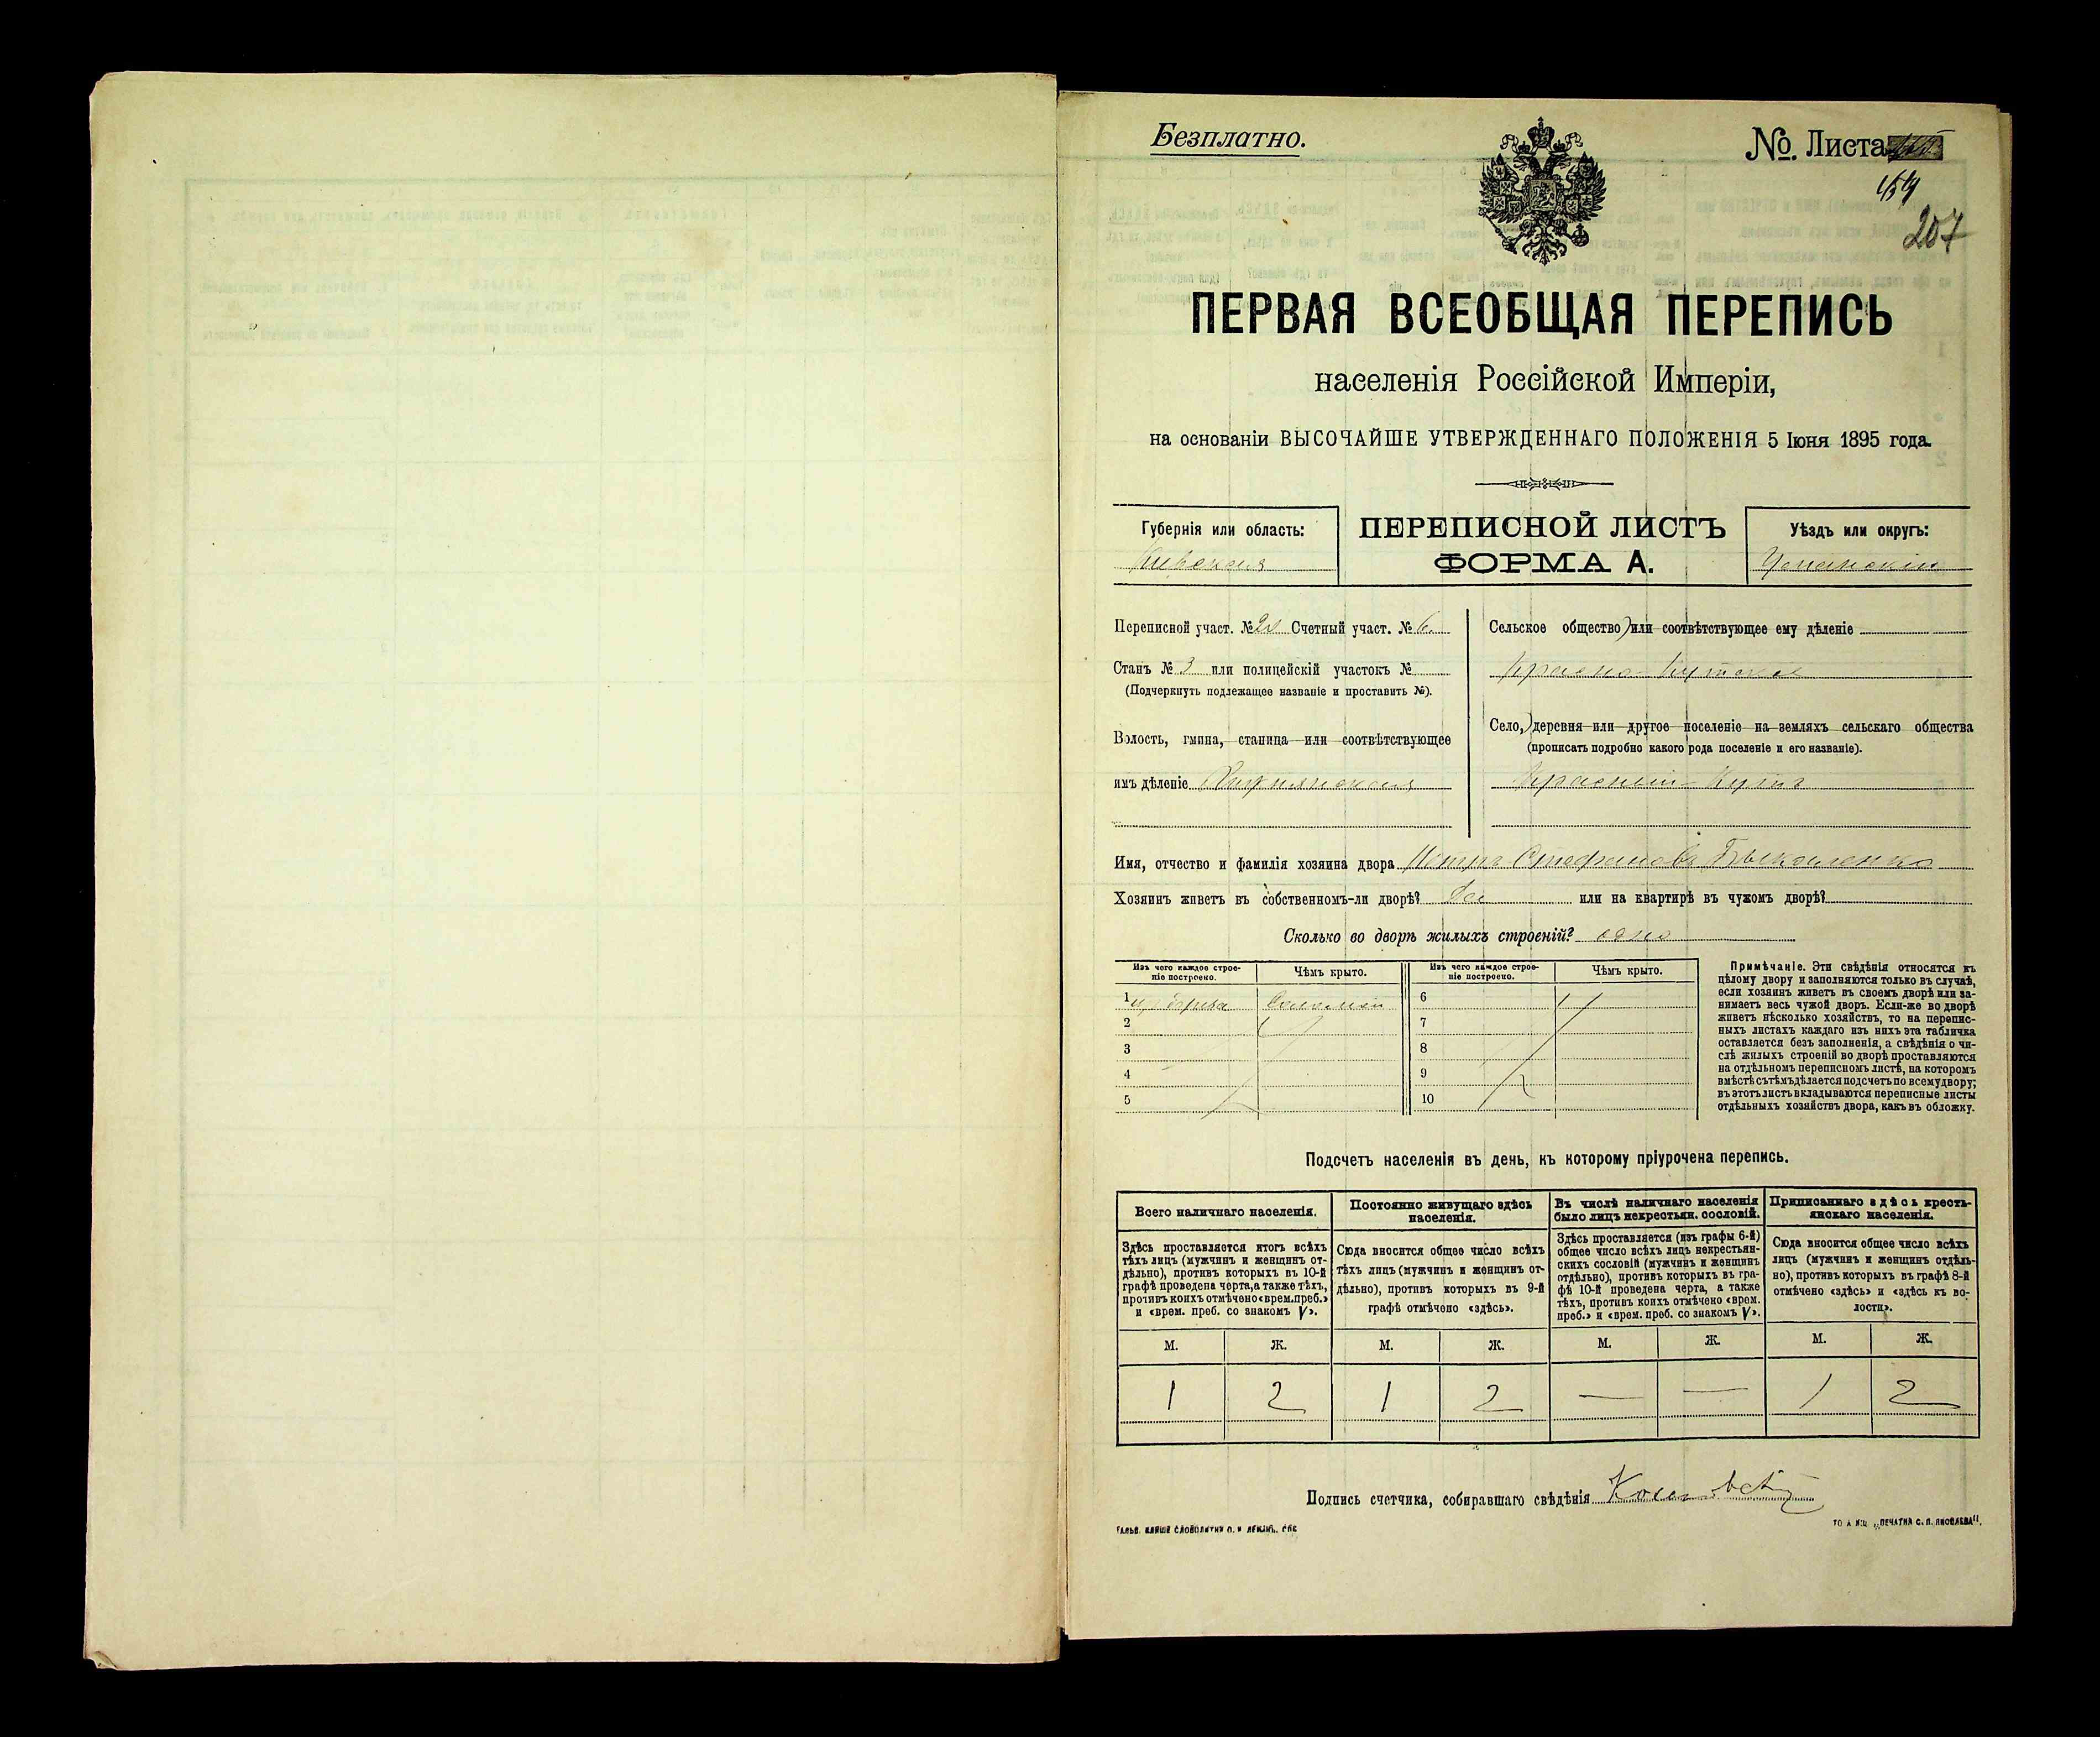 Безплатно.
№. Листа
159
207
ПЕРВАЯ ВСЕОБЩАЯ ПЕРЕПИСЬ
населенія Россійской Имперіи,
на основаніи ВЫСОЧАЙШЕ УТВЕРЖДЕННАГО ПОЛОЖЕНІЯ 5 Іюня 1895 года.
Губернія или область:
Кіевская
ПЕРЕПИСНОЙ ЛИСТЪ
ФОРМА А.
Уѣздъ или округъ:
Уманскій
Переписной участ. № Счетный участ. № 6.
Станъ № 3 или полицейскій участокъ №
(Подчеркнуть подлежащее названіе и проставить №).
Волость, гмина, станица или соотвѣтствующее
имъ дѣленіе
Сельское общество или соотвѣтствующее ему дѣленіе
Красно-Кутское
Село, деревня или другое поселеніе на земляхъ сельскаго общества
(прописать подробно какого рода поселеніе и его названіе).
Красный-Кутъ
Имя, отчество и фамилія хозяина двора Петръ Стефановъ
Хозяинъ живетъ въ собственномъ-ли дворѣ? Да или на квартирѣ въ чужомъ дворѣ?
Сколько во дворѣ жилыхъ строеній? одно
Изъ чего каждое строеніе построено.
Чѣмъ крыто.
Изъ чего каждое строеніе построено.
Чѣмъ крыто.
1 изъ дерева Соломой
2
3
4
5
6
7
8
9
10
Примѣчаніе. Эти свѣдѣнія относятся къ
цѣлому двору и заполняются только въ случаѣ,
если хозяинъ живетъ въ своемъ дворѣ или за-
нимаетъ весь чужой дворъ. Если-же во дворѣ
живетъ нѣсколько хозяйствъ, то на перепис-
ныхъ листахъ каждаго изъ нихъ эта табличка
оставляется безъ заполненія, а свѣдѣнія о чи-
слѣ жилыхъ строеній во дворѣ проставляются
на отдѣльномъ переписномъ листѣ, на которомъ
вмѣстѣ съ тѣмъ дѣлается подсчетъ по всему двору;
въ этотъ листъ вкладываются переписные листы
отдѣльныхъ хозяйствъ двора, какъ въ обложку.
Подсчетъ населенія въ день, къ которому пріурочена перепись.
Всего наличнаго населенія.
Здѣсь проставляется итогъ всѣхъ
тѣхъ лицъ (мужчинъ и женщинъ от-
дѣльно), противъ которыхъ въ 10-й
графѣ проведена черта, а также тѣхъ,
противъ коихъ отмѣчено «врем. преб.»
и «врем. преб. со знакомъ V».
Постоянно живущаго здѣсь
населенія.
Сюда вносится общее число всѣхъ
тѣхъ лицъ (мужчинъ и женщинъ от-
дѣльно), противъ которыхъ въ 9-й
графѣ отмѣчено «здѣсь».
Въ числѣ наличнаго населенія
было лицъ некрестьян. сословій.
Здѣсь проставляется (изъ графы 6-й)
общее число всѣхъ лицъ некрестьян-
скихъ сословій (мужчинъ и женщинъ
отдѣльно), противъ которыхъ въ гра-
фѣ 10-й проведена черта, а также
тѣхъ, противъ коихъ отмѣчено «врем.
преб.» и «врем. преб. со знакомъ V».
Приписаннаго здѣсь кресть-
янскаго населенія.
Сюда вносится общее число всѣхъ
лицъ (мужчинъ и женщинъ отдѣль-
но), противъ которыхъ въ графѣ 8-й
отмѣчено «здѣсь» и «здѣсь къ во-
лости».
М. Ж. М. Ж. М. Ж. М. Ж.
1 2 1 2 — — 1 2
Подпись счетчика, собиравшаго свѣдѣнія